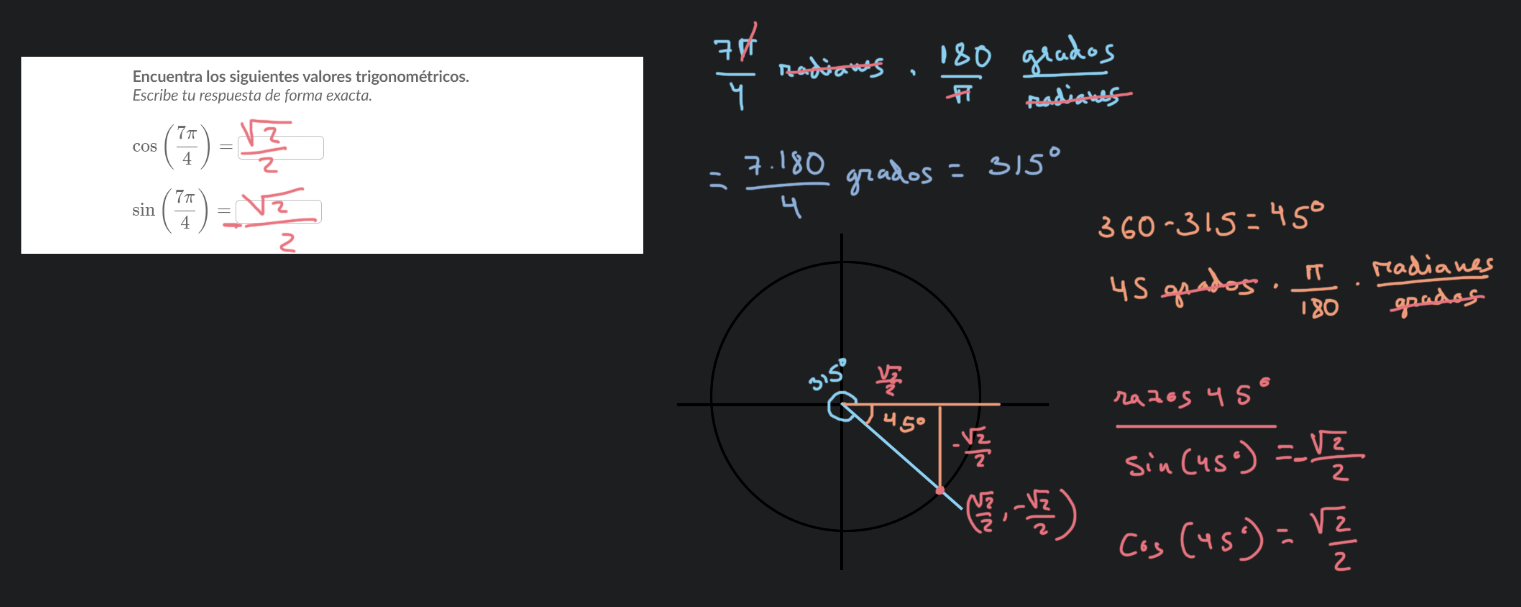 Encuentra los siguientes valores trigonométricos.
Escribe tu respuesta de forma exacta.
cos(7π/4) = √2/2
sin(7π/4) = -√2/2
7π/4 radianes . 180/π grados/radianes
= 7.180/4 grados = 315°
360-315=45°
45 grados . π/180 . radianes/grados
315°
√2/2
45°
-√2/2
(√2/2, -√2/2)
razos 45°
sin(45°) = -√2/2
Cos(45°) = √2/2